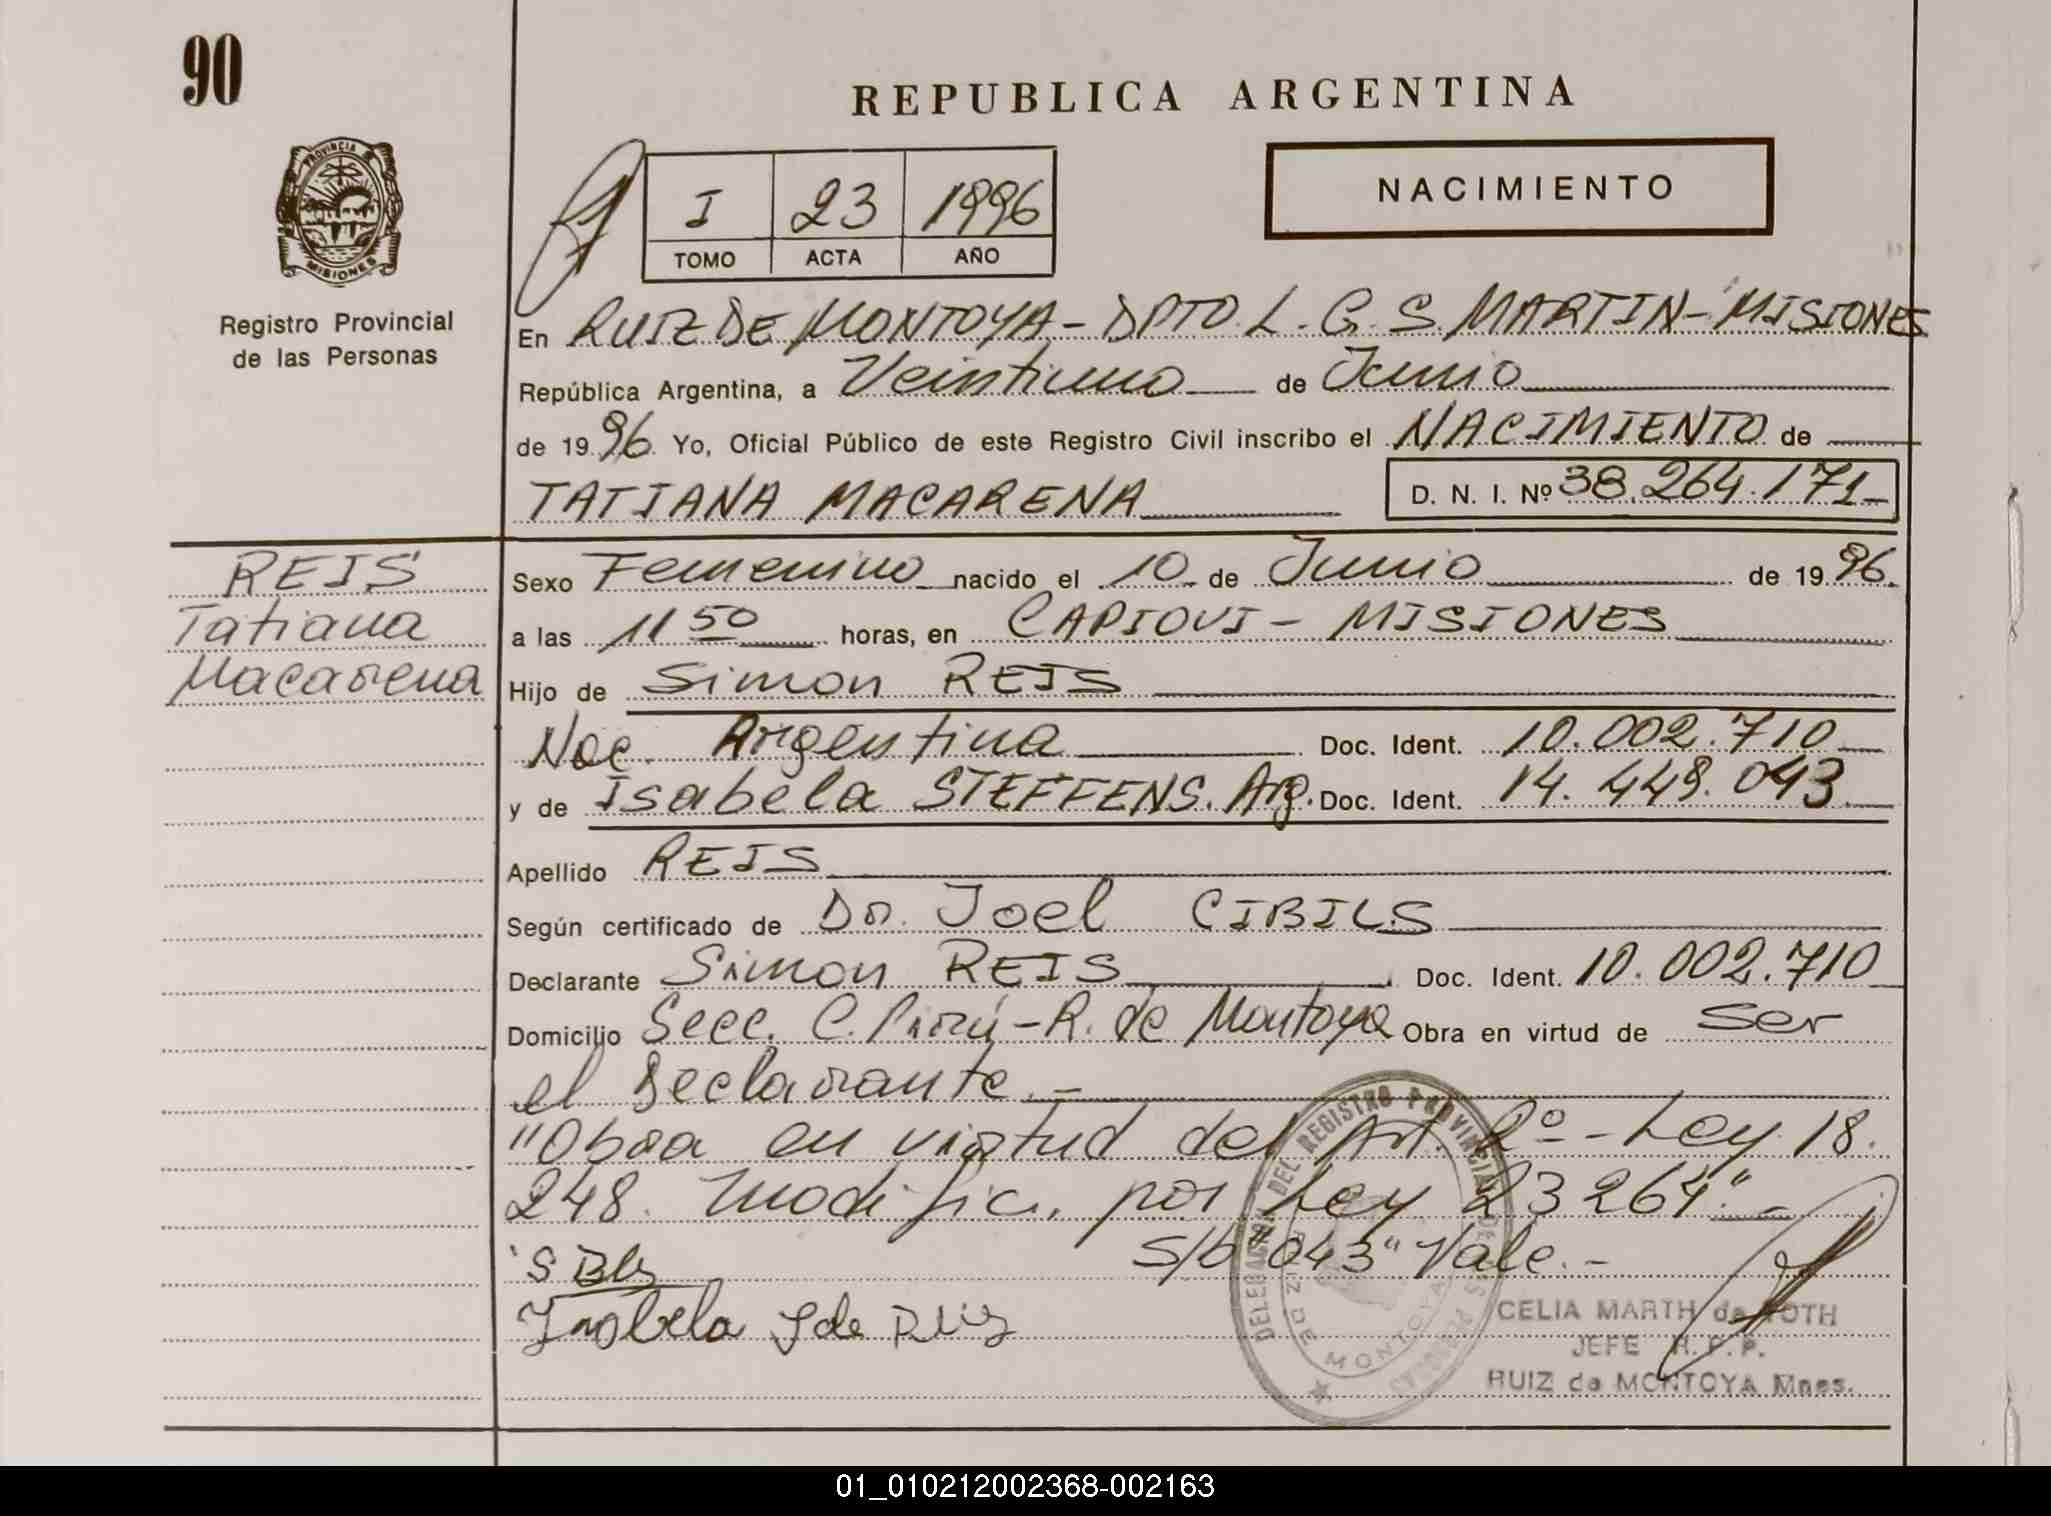 90
REPUBLICA ARGENTINA
PROVINCIA DE
MISIONES
Registro Provincial
de las Personas
I 23 1996
TOMO ACTA AÑO
NACIMIENTO
En RUIZ DE MONTOYA - DPTO. L. G. S. MARTIN - MISIONES
República Argentina, a Veintiuno de Junio
de 1996 Yo, Oficial Público de este Registro Civil inscribo el NACIMIENTO de
TATIANA MACARENA D. N. I. Nº 38.264.171-
REIS
Tatiana
Macarena
Sexo Femenino nacido el 10 de Junio de 1996.
a las 11 50 horas, en CAPIOVI - MISIONES
Hijo de Simon REIS
Nac. Argentina Doc. Ident. 10.002.710
y de Isabela STEFFENS. Arg. Doc. Ident. 14.449.043
Apellido REIS
Según certificado de Dr. Joel CIBILS
Declarante Simon REIS Doc. Ident. 10.002.710
Domicilio Secc. C. - R. de Montoya Obra en virtud de Ser
el Declarante.-
"Obra en virtud del Art. 2º - Ley 18.
248. modific. por Ley 23264".-
s/b "043" Vale.-
DELEGACION DEL REGISTRO PROVINCIAL DE LAS PERSONAS
RUIZ DE MONTOYA
CELIA MARTH de TOTH
JEFE R. P. P.
RUIZ de MONTOYA Mnes.
01_010212002368-002163